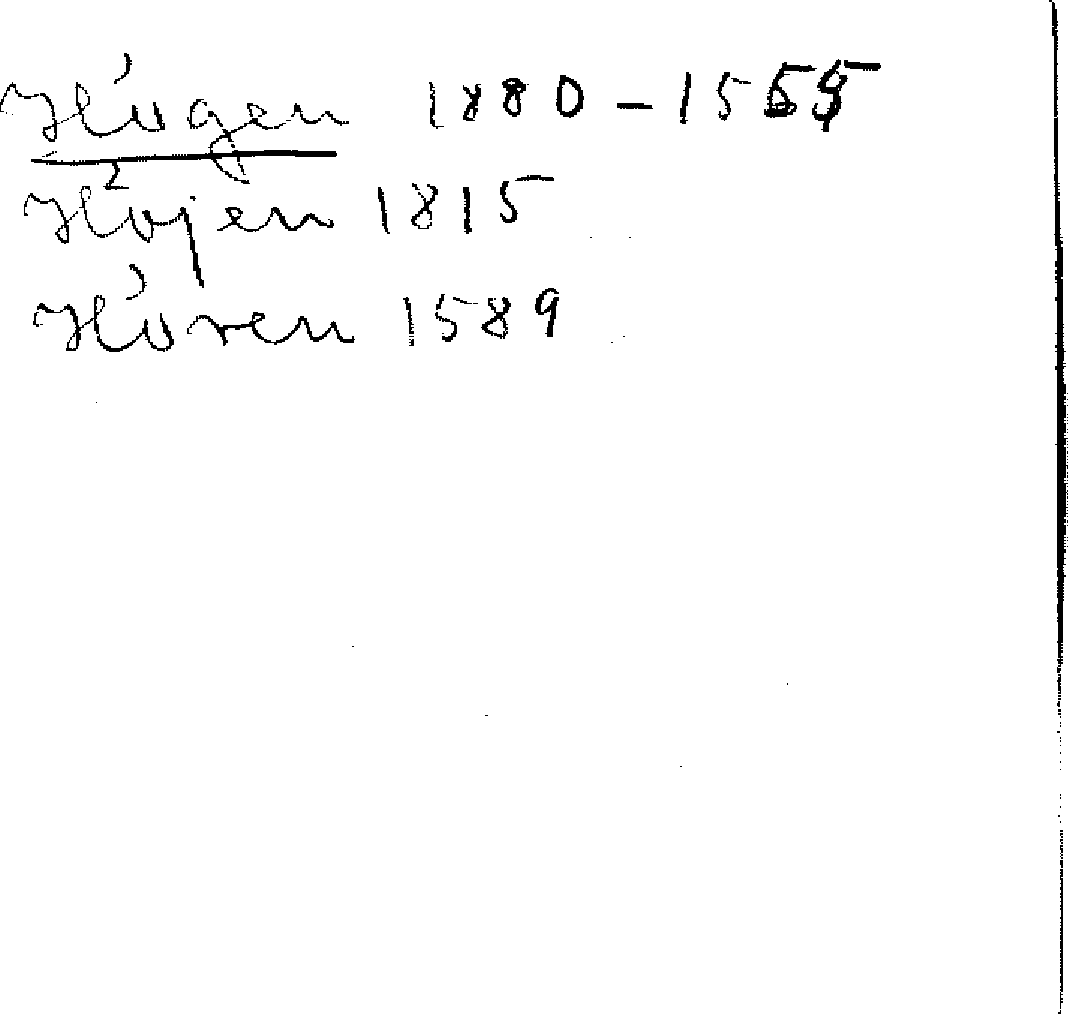 Högen 1880 – 1555
Höjen 1815
Hören 1589